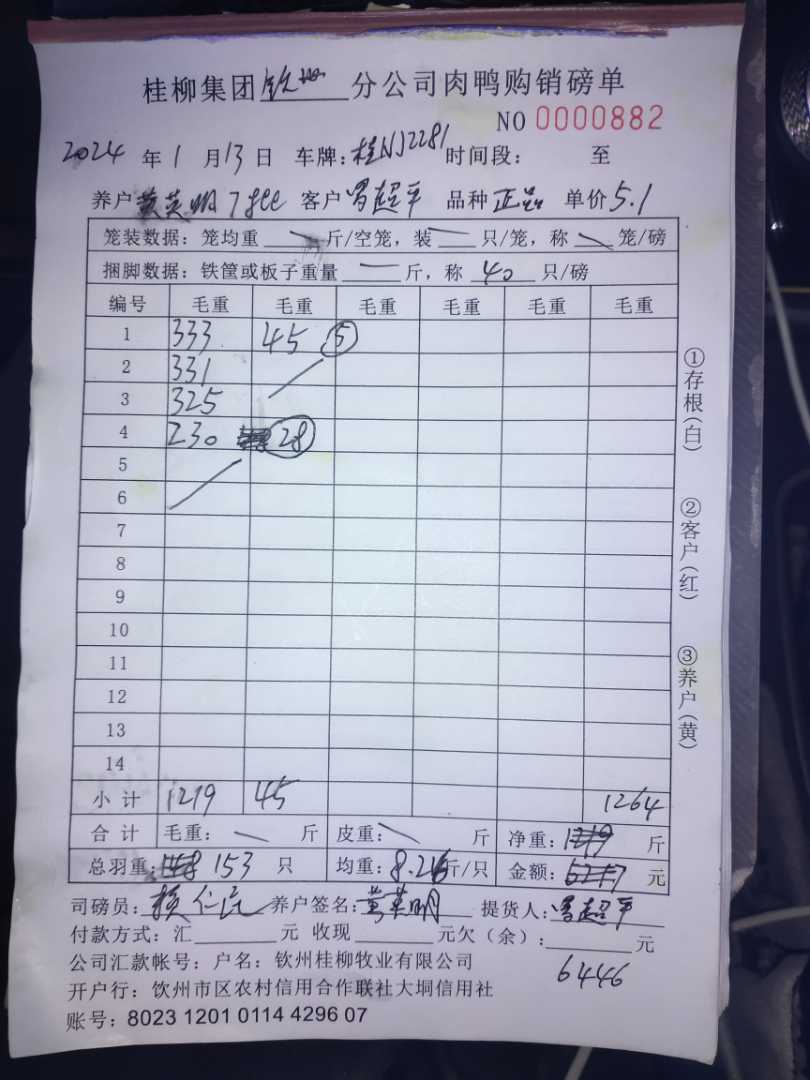 桂柳集团钦州分公司肉鸭购销磅单
NO 0000882
2024 年 1 月 13 日 车牌:桂NJ2281 时间段: 至
养户 黄英明 客户 罗超平 品种 正品 单价 5.1
笼装数据:笼均重 斤/空笼,装 只/笼,称 笼/磅
捆脚数据:铁筐或板子重量 斤,称 40 只/磅
编号 毛重 毛重 毛重 毛重 毛重 毛重
1 333 45 5
2 331
3 325
4 230 28
5
6
7
8
9
10
11
12
13
14
小计 1219 45 1264
合计 毛重: 斤 皮重: 斤 净重: 斤
总羽重: 153 只 均重: 8.26斤/只 金额: 元
司磅员: 养户签名:黄英明 提货人:罗超平
付款方式:汇 元 收现 元欠(余): 元
6446
公司汇款帐号:户名:钦州桂柳牧业有限公司
开户行:钦州市区农村信用合作联社大垌信用社
账号:8023 1201 0114 4296 07
①存根(白)
②客户(红)
③养户(黄)